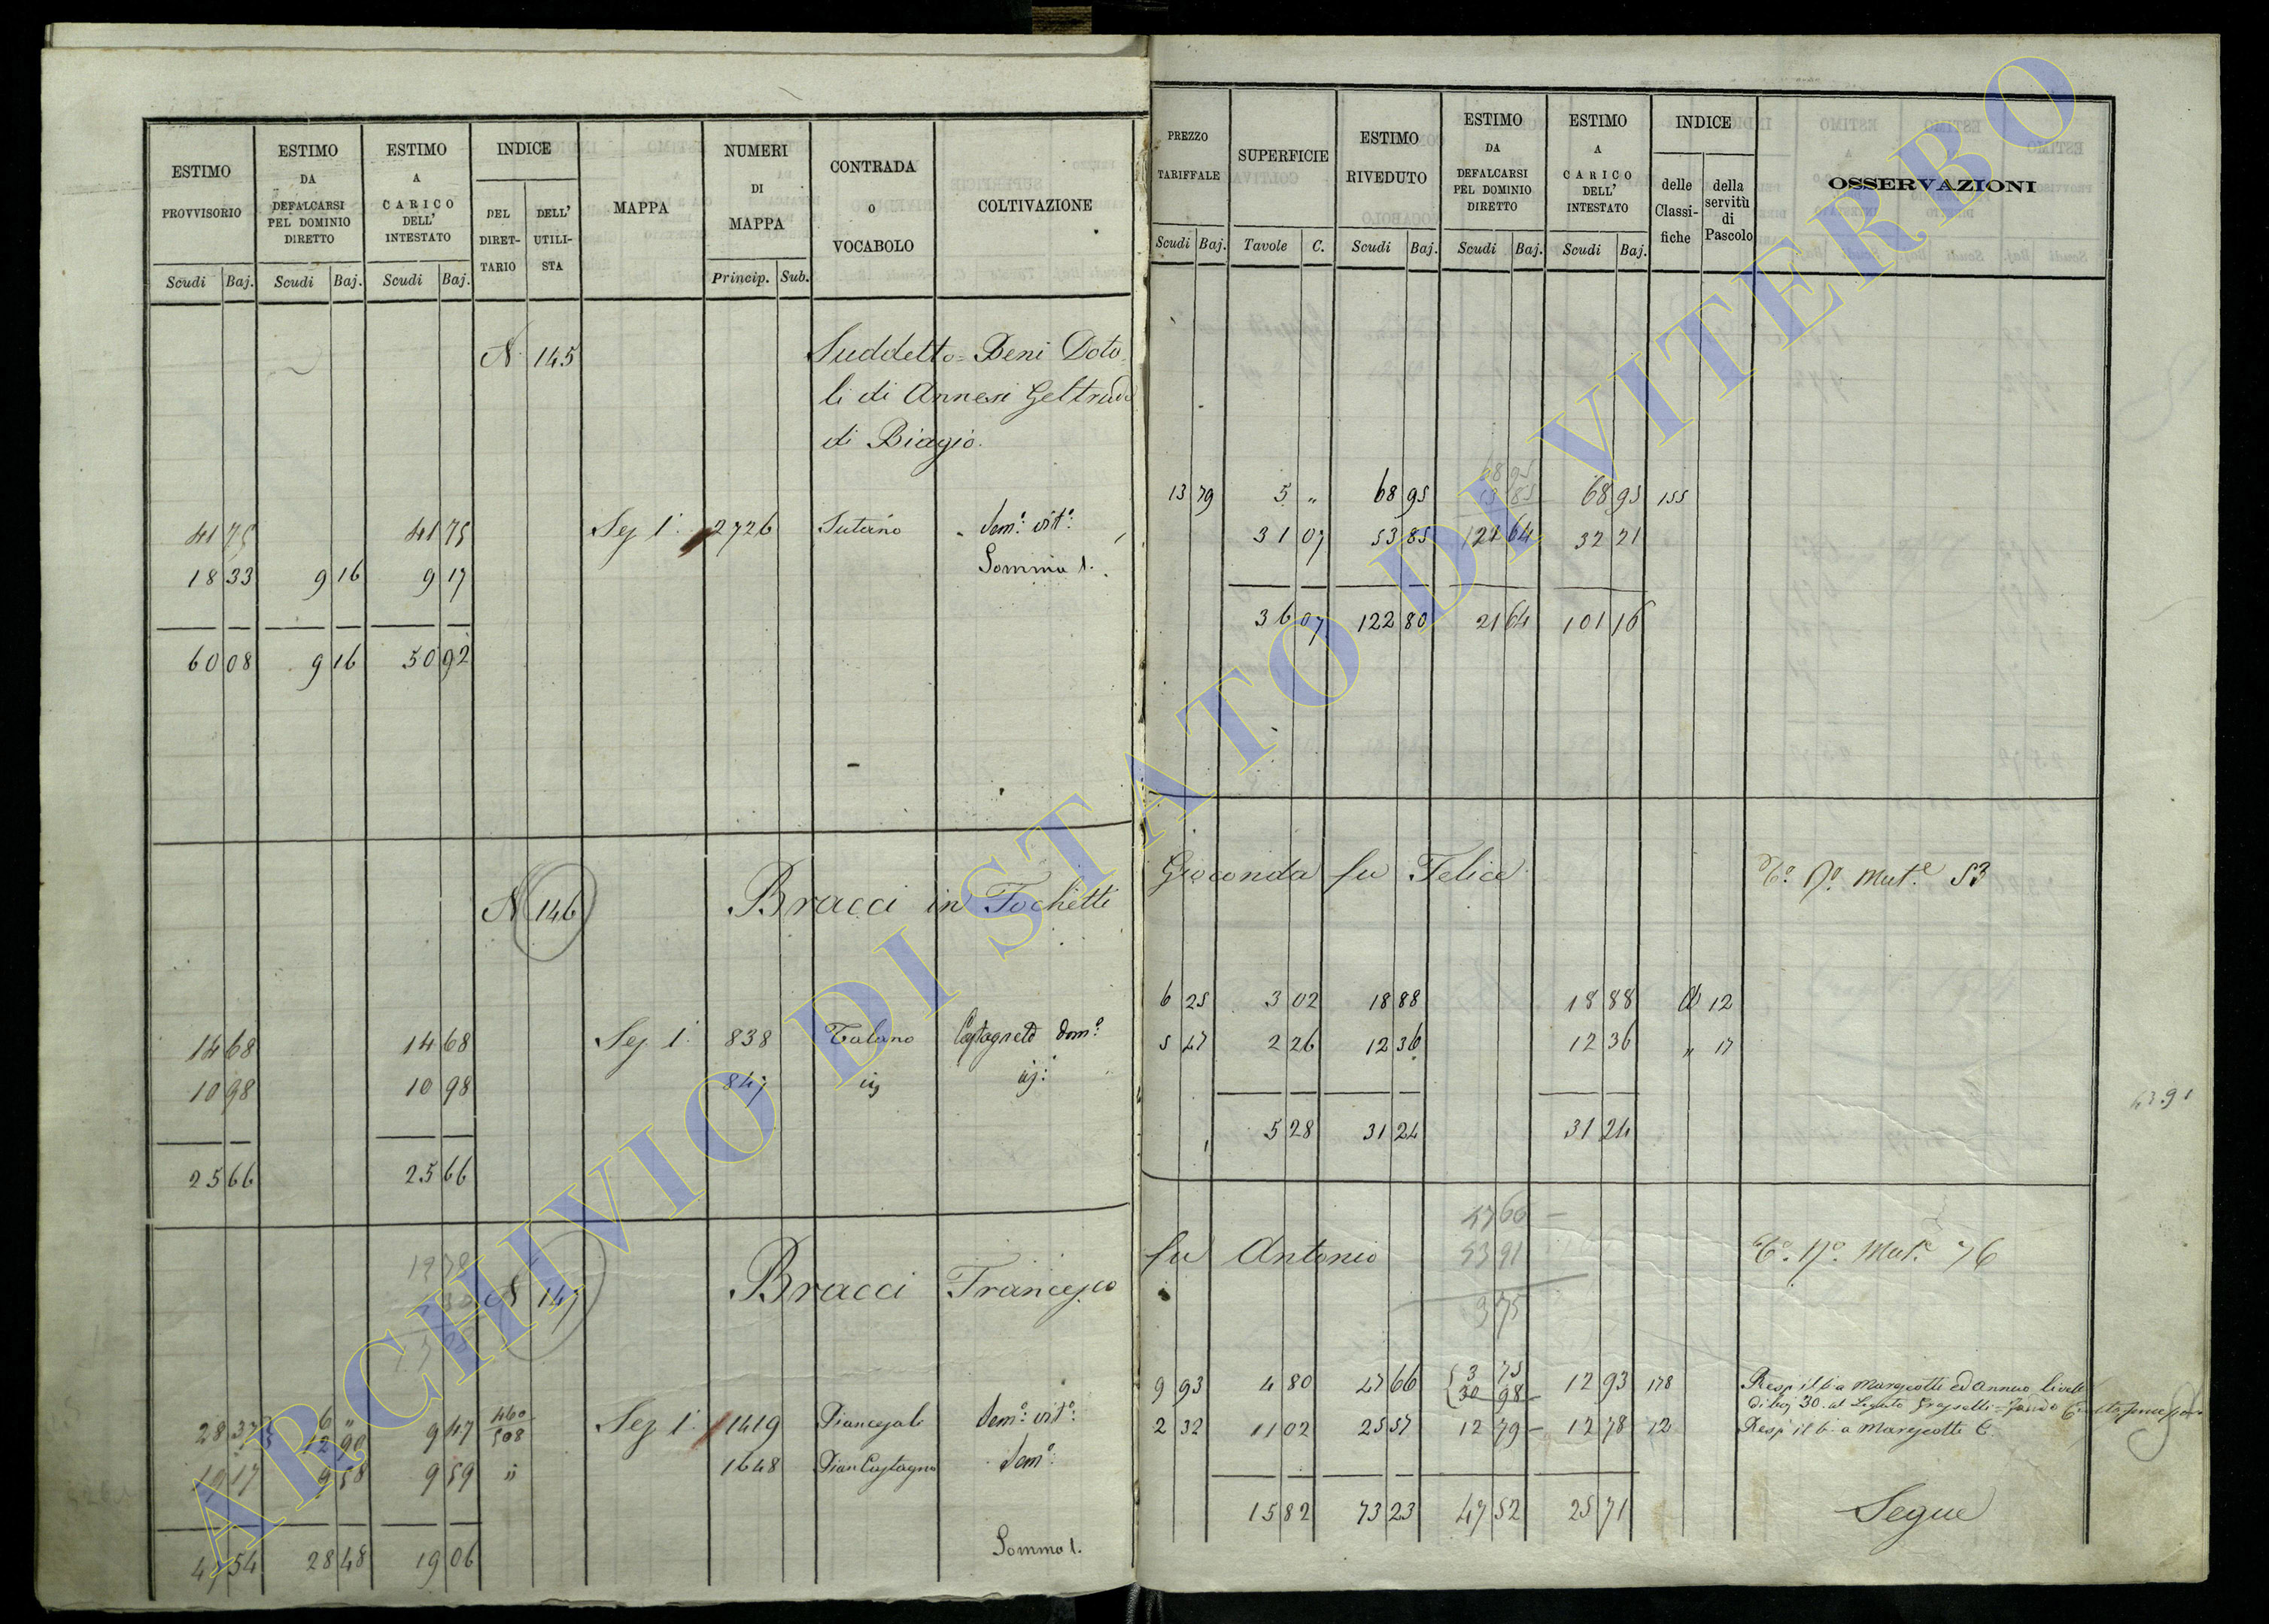 ESTIMO PROVVISORIO
ESTIMO DA DEFALCARSI PEL DOMINIO DIRETTO
ESTIMO A CARICO DELL' INTESTATO
INDICE
DEL DIRET-TARIO
DELL' UTILI-STA
MAPPA
NUMERI DI MAPPA
CONTRADA O VOCABOLO
COLTIVAZIONE
PREZZO TARIFFALE
SUPERFICIE
ESTIMO RIVEDUTO
ESTIMO DA DEFALCARSI PEL DOMINIO DIRETTO
ESTIMO A CARICO DELL' INTESTATO
INDICE
delle Classi-fiche
della servitù di Pascolo
OSSERVAZIONI
Scudi Baj. Scudi Baj. Scudi Baj. Princip. Sub.
Scudi Baj. Tavole C. Scudi Baj. Scudi Baj. Scudi Baj.
N. 145 Suddetto = Beni Dota
li di Annesi Geltrude
di Biagio.
68 95
41 75 41 75 Sez 1. 2726 Sutano Sem.º vit.º 13 79 5 " 68 95 53 85 68 95 155
18 33 9 16 9 17 Somma 1. 31 07 53 85 21 64 32 21
60 08 9 16 50 92 36 07 122 80 21 64 101 16
N 146 Bracci in Fochetti Gioconda fu Felice Mut.e 53
14 68 14 68 Sez 1. 838 Talano Castagneto Dom.º 6 25 3 02 18 88 18 88 12
10 98 10 98 847 5 47 2 26 12 36 12 36 " 17
43.91
25 66 25 66 5 28 31 24 31 24
47 66
N 147 Bracci Francesco fu Antonio 43 91 Mut.e 76
3 75
28 37 6 " 12 90 9 47 460 508 Sez 1. 1419 Piancasale Sem.º vit.º 9 93 4 80 47 66 3 75 30 98 12 93 178 Resp il 6. a Margottti ed annuo livello
di baj 30. al Legato
19 17 9 58 9 59 " 1648 Pian Castagno Sem.º 2 32 11 02 25 57 12 79 12 78 12 Resp il 6. a Margotti C.
47 54 28 48 19 06 Somma 1. 15 82 73 23 47 52 25 71 Segue
ARCHIVIO DI STATO DI VITERBO